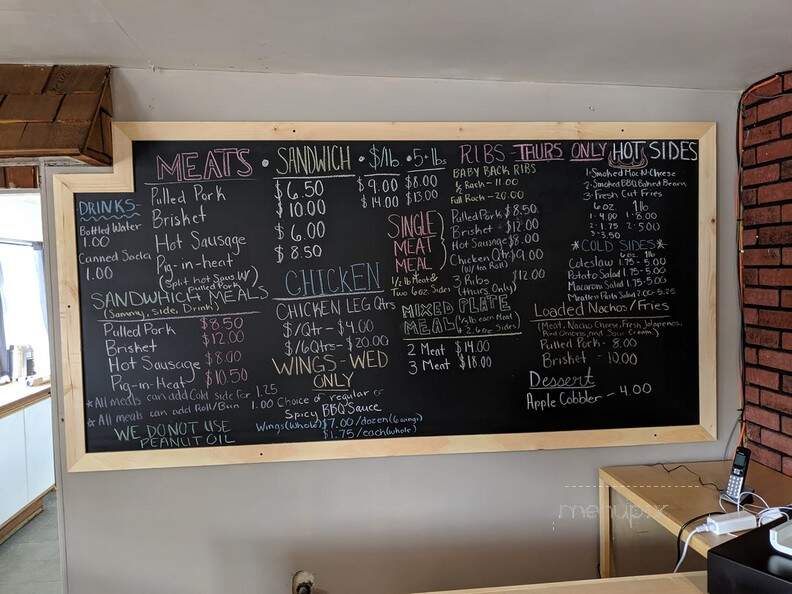 MEATS • SANDWICH • $/lb • 5+lbs
Pulled Pork $6.50 $9.00 $8.00
Brisket $10.00 $14.00 $13.00
Hot Sausage $6.00
Pig-in-heat $8.50
(Split hot Saus. w/ Pulled Pork)
DRINKS-
Bottled Water
1.00
Canned Soda
1.00
SANDWHICH MEALS
(Sammy, side, Drink)
Pulled Pork $8.50
Brisket $12.00
Hot Sausage $8.00
Pig-in-Heat $10.50
*All meals can add Cold side for 1.25
*All meals can add Roll/Bun 1.00
WE DO NOT USE
PEANUT OIL
CHICKEN
CHICKEN LEG Qtrs
$/Qtr - $4.00
$/6Qtrs - $20.00
WINGS - WED
ONLY
Choice of regular or
Spicy BBQ Sauce
Wings(whole) $7.00/dozen(6 wings)
$1.75/each(whole)
RIBS - THURS ONLY
BABY BACK RIBS
½ Rack - 11.00
Full Rack - 20.00
SINGLE
MEAT
MEAL
½ lb Meat &
Two 6oz. Sides
Pulled Pork $8.50
Brisket $12.00
Hot Sausage $8.00
Chicken Qtr $9.00
3 Ribs $12.00
(Thurs Only)
MIXED PLATE
MEAL
2 Meat $14.00
3 Meat $18.00
HOT SIDES
1-Smoked Mac-N-Cheese
2-Smoked BBQ Baked Beans
3-Fresh Cut Fries
6oz. 1lb
1-4.00 1-8.00
2-1.75 2-5.00
3-3.50
*COLD SIDES*
6oz. 1lb
Coleslaw 1.75 - 5.00
Potato Salad 1.75 - 5.00
Macaroni Salad 1.75 - 5.00
Meatless Pasta Salad 2.00-5.25
Loaded Nachos/Fries
(Meat, Nacho Cheese, Fresh Jalapenos,
Red Onions, and Sour Cream)
Pulled Pork - 8.00
Brisket - 10.00
Dessert
Apple Cobbler - 4.00
menupix